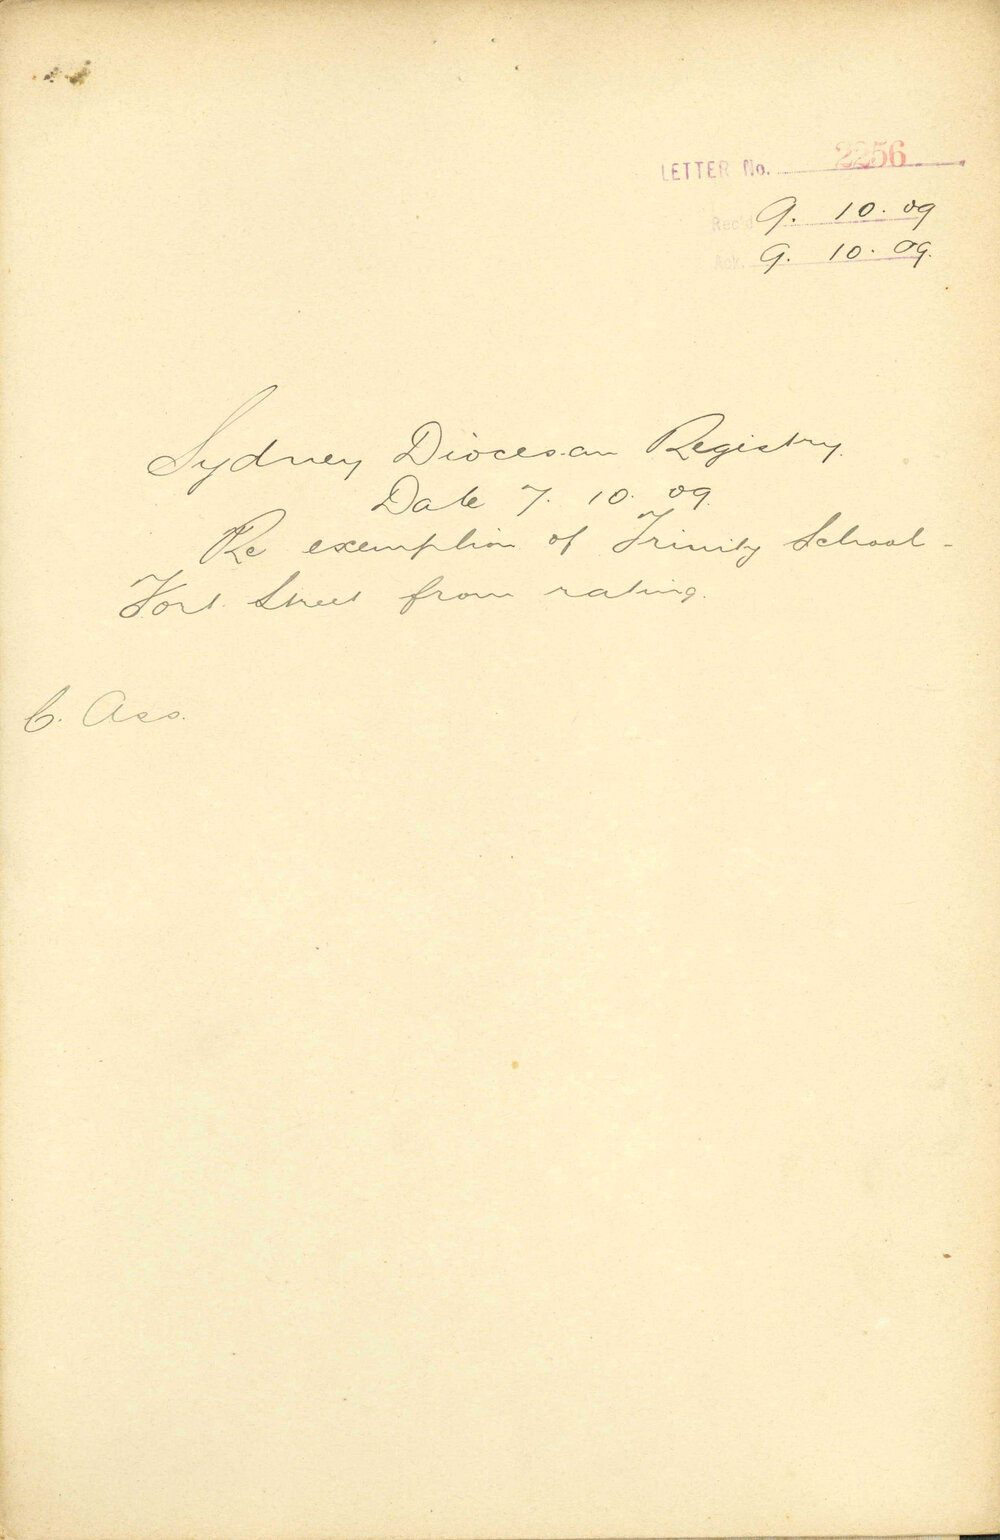 LETTER No. 2256
Rec'd 9. 10. 09
Ack. 9. 10. 09.
Sydney Diocesan Registry.
Date 7. 10. 09.
Re exemption of Trinity School -
Fort Street from rating.
C. Ass.